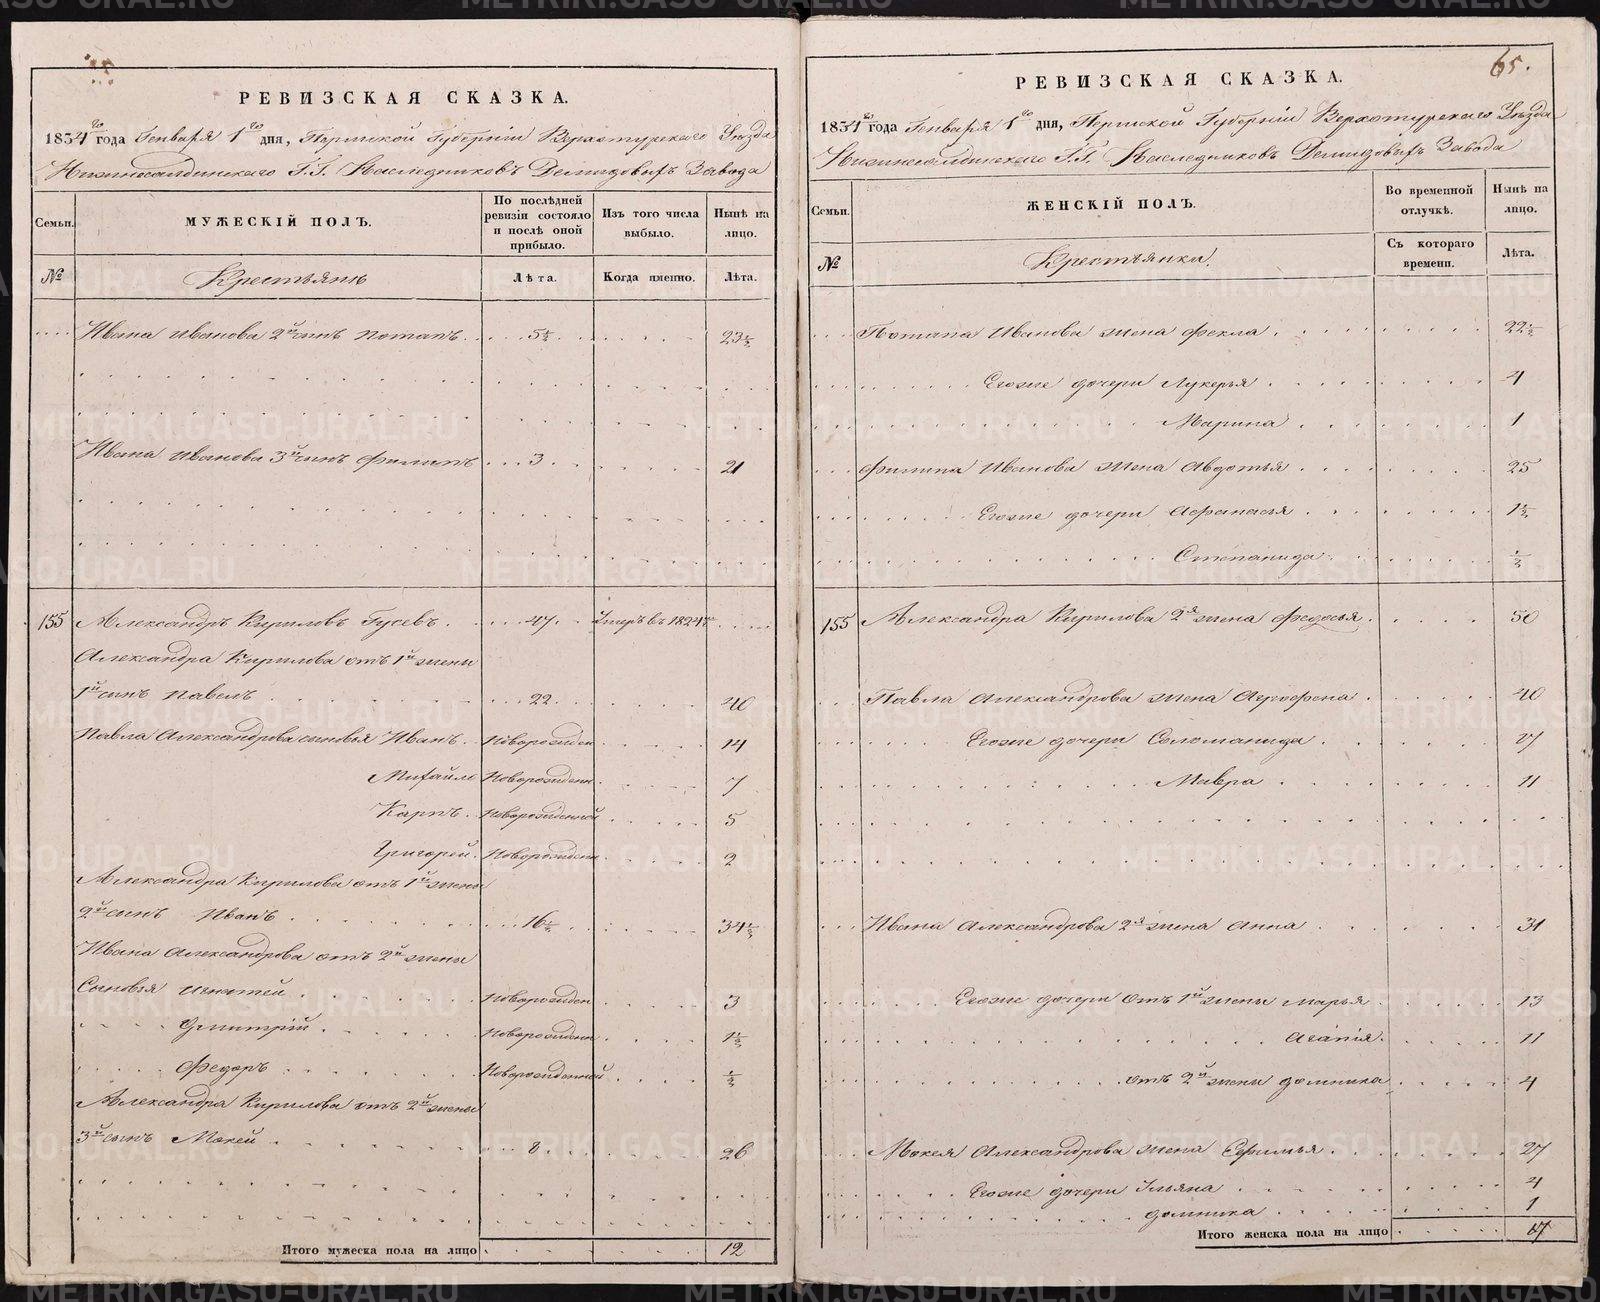 РЕВИЗСКАЯ СКАЗКА.
1834го года Генваря 1го дня, Пермской Губерніи Верхотурскаго Уѣзда
Нижнесалдинскаго Г.Г. Наслѣдниковъ Демидовыхъ Завода
Семьи.
МУЖЕСКІЙ ПОЛЪ.
По послѣдней ревизіи состояло и послѣ оной прибыло.
Изъ того числа выбыло.
Нынѣ на лицо.
№
Крестьянѣ
Лѣта.
Когда именно.
Лѣта.
Ивана Иванова 2й сынъ Потапъ 5½ 23½
Ивана Иванова 3й сынъ Филипъ 3 21
155 Александръ Кириловъ Гусевъ 47 Умеръ въ 1824м
Александра Кирилова отъ 1й жены
1й сынъ Павелъ 22 40
Павла Александрова сыновья Иванъ Новорожден 14
Михайло Новорожден 7
Карпъ Новорожденной 5
Григорей Новорожден 2
Александра Кирилова отъ 1й жены
2й сынъ Иванъ 16½ 34½
Ивана Александрова отъ 2й жены
Сыновья Игнатей Новорожден 3
Дмитрій Новорожден 1½
Федоръ Новорожденной ½
Александра Кирилова отъ 2й жены
3й сынъ Мокей 8 26
Итого мужеска пола на лицо 12
65.
РЕВИЗСКАЯ СКАЗКА.
1834го года Генваря 1го дня, Пермской Губерніи Верхотурскаго Уѣзда
Нижнесалдинскаго Г.Г. Наслѣдниковъ Демидовыхъ Завода
Семьи.
ЖЕНСКІЙ ПОЛЪ.
Во временной отлучкѣ.
Нынѣ на лицо.
№
Крестьянки.
Съ котораго времени.
Лѣта.
Потапа Иванова жена Фекла 22½
Егоже дочери Лукерья 4
Марина 1
Филипа Иванова жена Авдотья 25
Егоже дочери Афанасья 1½
Степанида ½
155 Александра Кирилова 2я жена Федосья 50
Павла Александрова жена Агрофена 40
Егоже дочери Соломанида 17
Мавра 11
Ивана Александрова 2я жена Анна 31
Егоже дочери отъ 1й жены Марья 13
Агапія 11
отъ 2й жены Домника 4
Мокея Александрова жена Ефимья 27
Егоже дочери Ульяна 4
Домника 1
Итого женска пола на лицо 17
METRIKI.GASO-URAL.RU